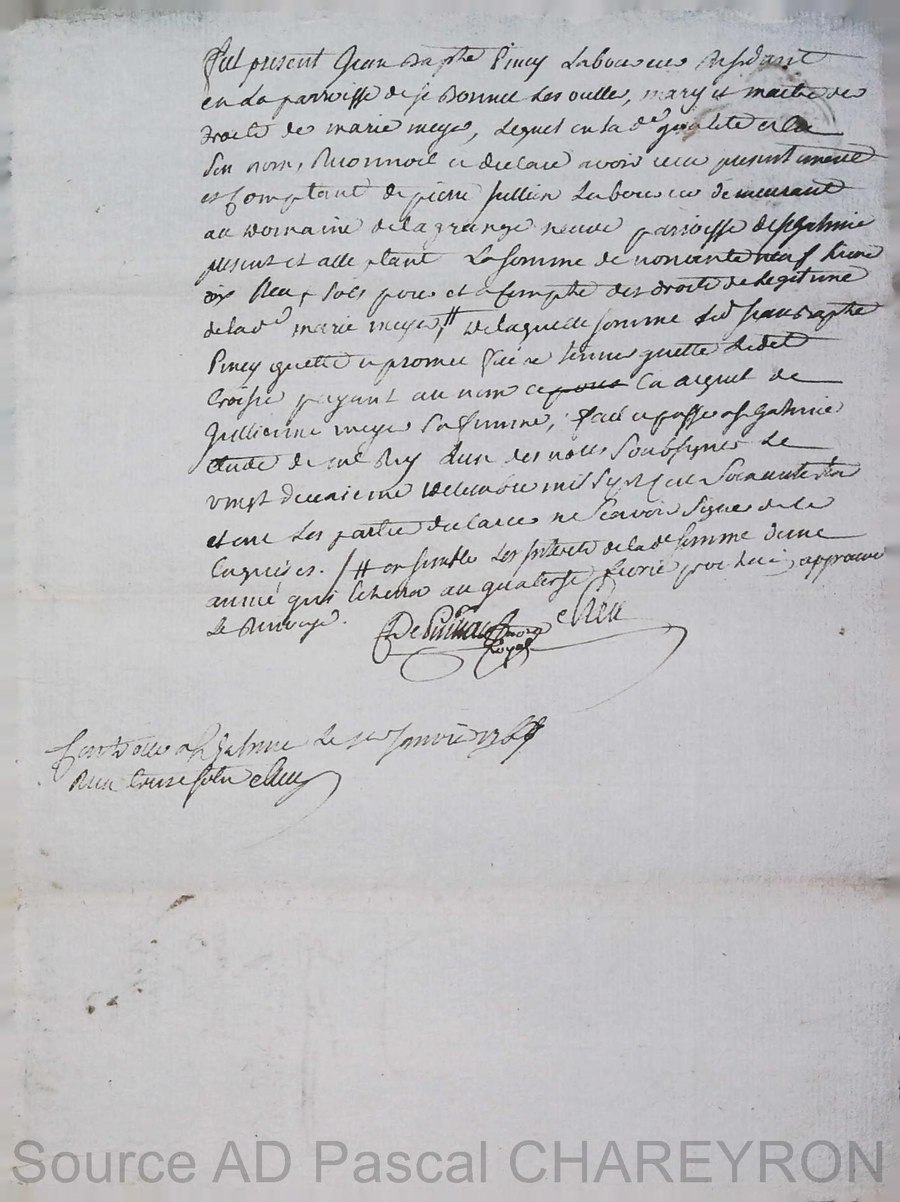 Fut present Jean Baptte Piney Laboureur Residant
en La parroisse de St Bonnet Les oulle, mary et maitre des
droits de marie meyer, Lequel en la de qualité et en
Son nom, Reconnoit et declare avoir recu presentement
et Comptant de pierre Jullien Laboureur demeurant
au domaine de la grange neuve parroisse de St Galmie
present et acceptant La Somme de nonante neuf livres
dix neuf Sols pour et a Compte des droits de Legitime
de la de marie meyer, # de laquelle Somme led Jean Baptte
Piney quitte et promet faire tenir quitte Ledit
payant au nom et pour Et acquit de
Jullienne meyer Sa femme, fait et passé a St Galmie
Etude de me Rey L'un des nores Soubsignés Le
vingt deuxieme decembre mil Sept Cent Soixante Six
et ont Les parties declaré ne Scavoir Signer de ce
Enquises. / # ensemble Les Interets de la de Somme d'une
année qui Echerra au quatorze fevrier prochain, approuvé
Le Renvoye.
nore
Royal
Controllé a St Galmie Le Janvier 1767
Recu treize Sols
Source AD Pascal CHAREYRON